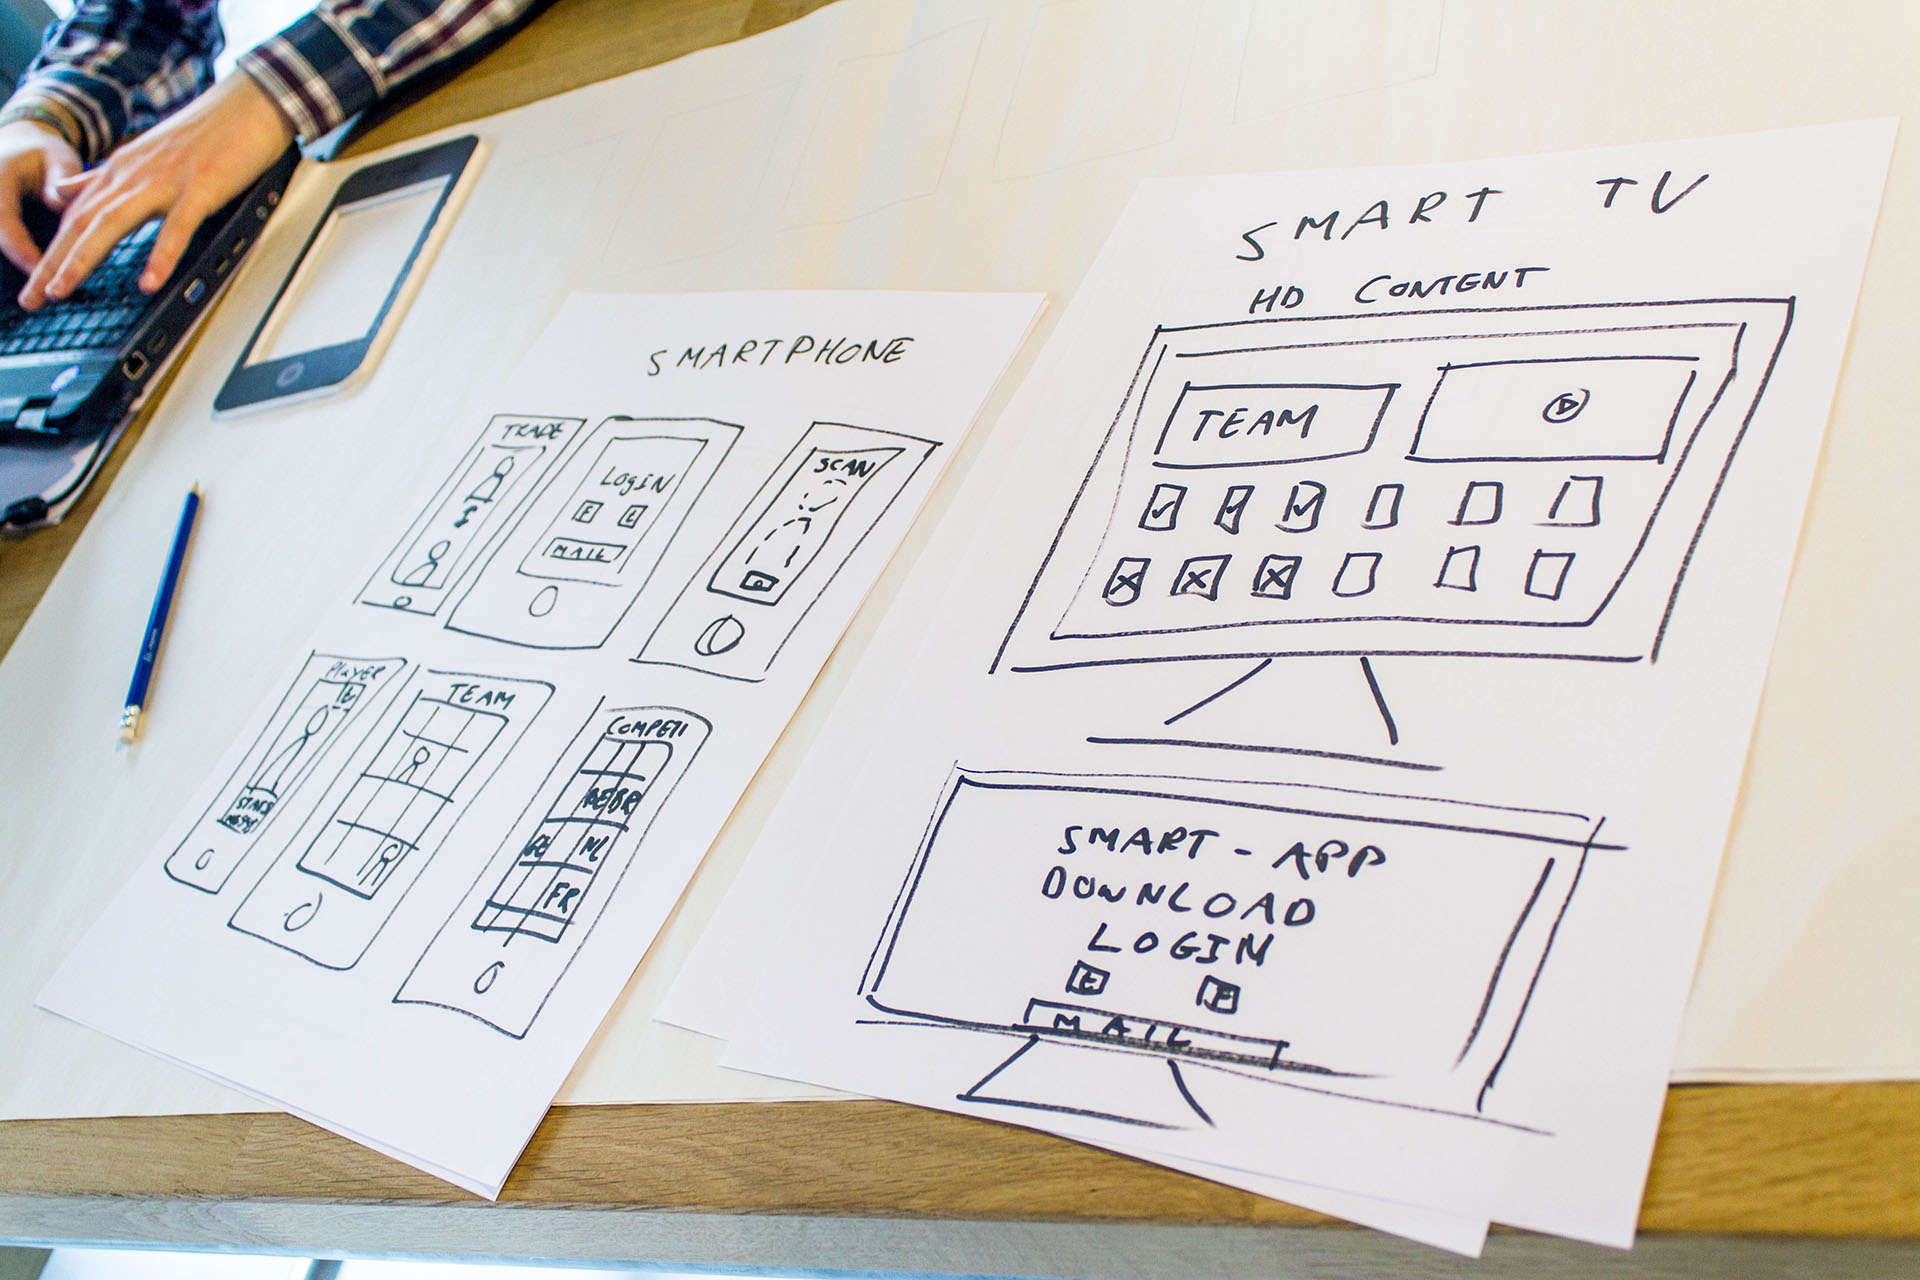 SMARTPHONE
TRADE
LOGIN
F
MAIL
SCAN
PLAYER
t
STATS
TEAM
COMPETI
BE BR
GE NL
FR
SMART TV
HD CONTENT
TEAM
SMART-APP
DOWNLOAD
LOGIN
t F
MAIL